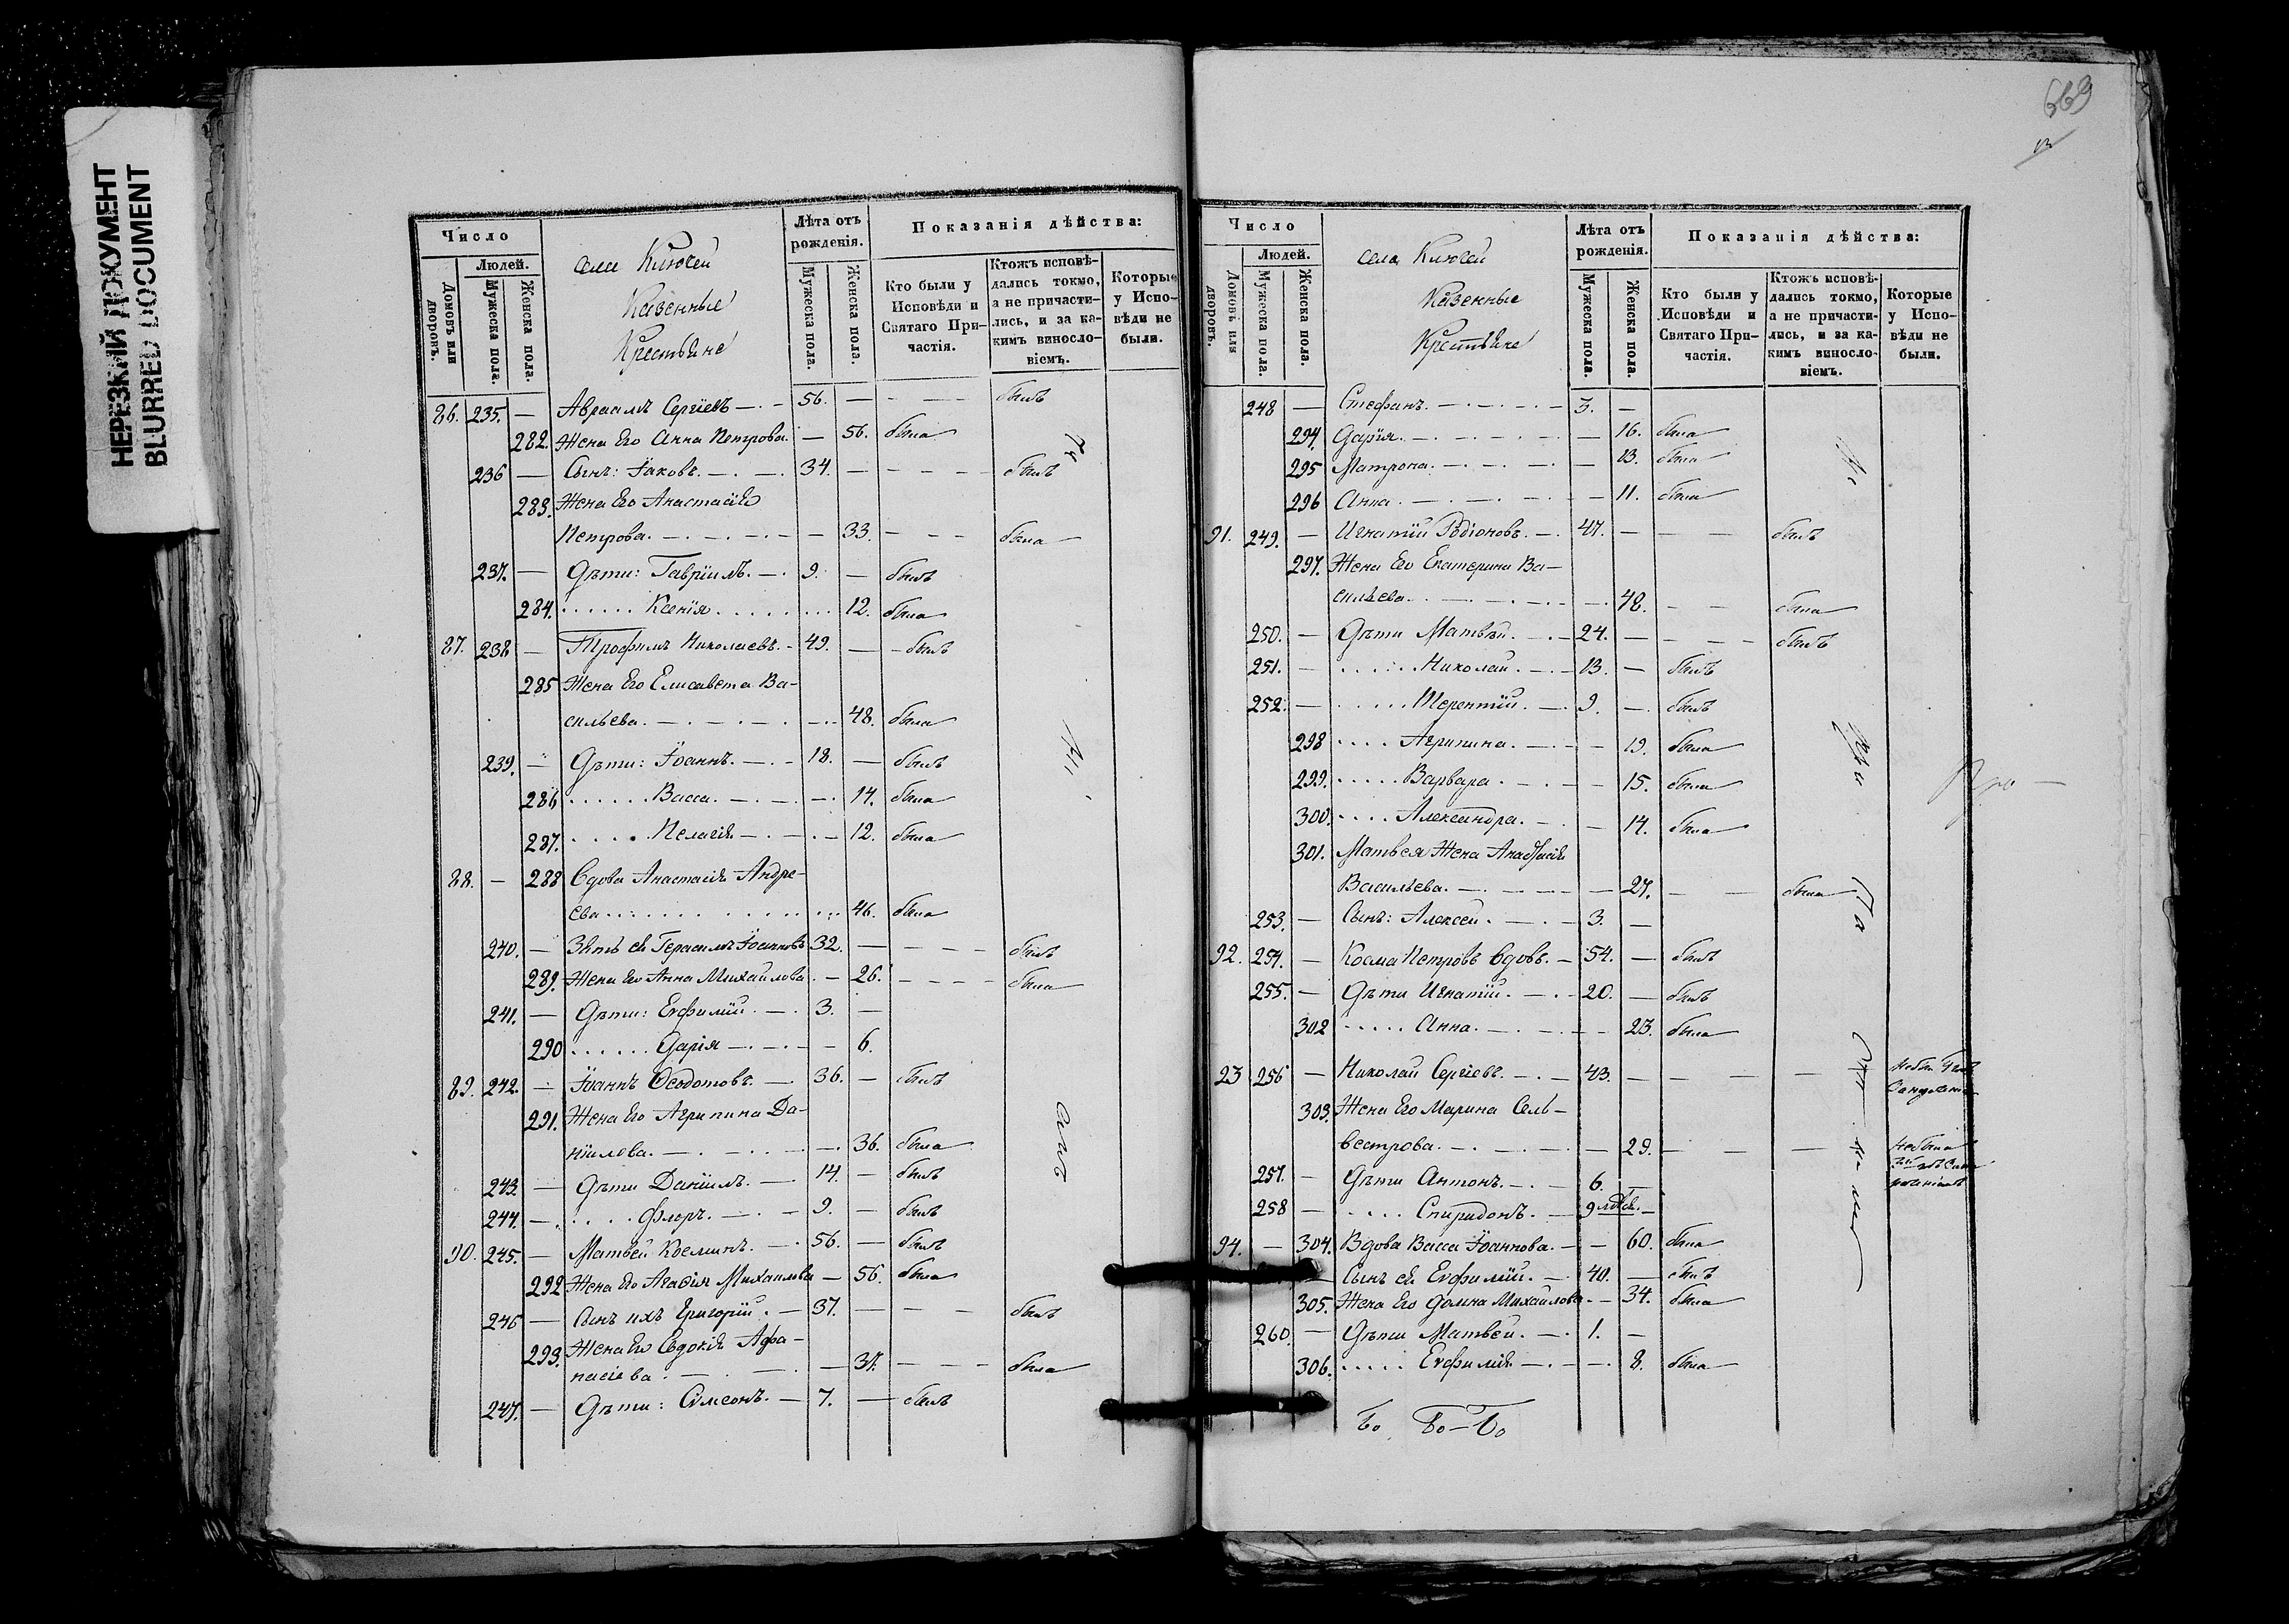 НЕРЕЗКИЙ ДОКУМЕНТ
BLURRED DOCUMENT
Число
Людей.
Домовъ или дворовъ.
Мужеска пола.
Женска пола.
села Ключей
Казенные
Крестьяне
Лѣта отъ рожденія.
Мужеска пола.
Женска пола.
Показанія дѣйства:
Кто были у Исповѣди и Святаго При-частія.
Ктожъ исповѣ-дались токмо, а не причасти-лись, и за ка-кимъ виносло-віемъ.
Которые у Испо-вѣди не были.
86. 235. — Авраамъ Сергіевъ — 56. — былъ
282. Жена Его Анна Петрова. — 56. была
236 — Сынъ: Іаковъ. — 34. — былъ
283. Жена Его Анастасія
Петрова. — 33. — была
237. — Дѣти: Гавріилъ. — 9. — былъ
284. Ксенія 12. была
87. 238 — Трофимъ Николаевъ. 49. — былъ
285 Жена Его Елисавета Ва-
сильева. — 48. была
239. — Дѣти: Іоаннъ. — 18. — былъ
286 Васса. — 14. была
287. Пелагія — 12. была
88. — 288 Вдова Анастасія Андре-
ева 46. была
240. — Зять ея Герасимъ Іоанновъ 32. — былъ
289. Жена Его Анна Михайлова. — 26. — была
241. — Дѣти: Евфимій. — 3. —
290 Дарія — 6.
89. 242. — Іоаннъ Ѳеодотовъ. — 36. — былъ
291. Жена Его Агрипина Да-
ніилова. — 36. была
243. — Дѣти Даніилъ. — 14. — былъ
244. — Флоръ. — 9. — былъ
90. 245. — Матвей Косминъ. — 56. — былъ
292 Жена Его Агафія Михаилова — 56. была
246 — Сынъ ихъ Григорій. — 37. — былъ
293. Жена Его Евдокія Афа-
насіева. — 37. — была
247. — Дѣти: Симеонъ. — 7. — былъ
669
Число
Людей.
Домовъ или дворовъ.
Мужеска пола.
Женска пола.
села Ключей
Казенные
Крестьяне
Лѣта отъ рожденія.
Мужеска пола.
Женска пола.
Показанія дѣйства:
Кто были у Исповѣди и Святаго При-частія.
Ктожъ исповѣ-дались токмо, а не причасти-лись, и за ка-кимъ виносло-віемъ.
Которые у Испо-вѣди не были.
248 — Стефанъ. — 3. —
294. Дарія. — 16. была
295 Матрона. — 13. была
296 Анна. — 11. была
91. 249. — Игнатій Родіоновъ. — 47. — былъ
297. Жена Его Екатерина Ва-
сильева. — 48. — была
250. — Дѣти Матвей. — 24. — былъ
251. — Николай. — 13. — былъ
252. — Терентій. — 9. — былъ
298 Агрипина. — 19. была
299. Варвара. — 15. была
300. Александра. — 14. была
301. Матвея Жена Анастасія
Васильева. — 27. — была
253. — Сынъ: Алексей. — 3. —
92. 254. — Косма Петровъ вдовъ. — 54. — былъ
255. — Дѣти Игнатій. — 20. — былъ
302 Анна. — 23. была
93 256 — Николай Сергіевъ. — 43. —
303. Жена Его Марина Сель-
вестрова. — 29. — не была
257. — Дѣти Антонъ. — 6. —
258 — Спиридонъ. — 9
94. — 304. Вдова Васса Іоаннова. — 60. была
— Сынъ ея Евфимій. — 40. — былъ
305. Жена Его Домна Михайлова. — 34. была
260. — Дѣти Матвей. — 1. —
306. Евфимія — 8. была